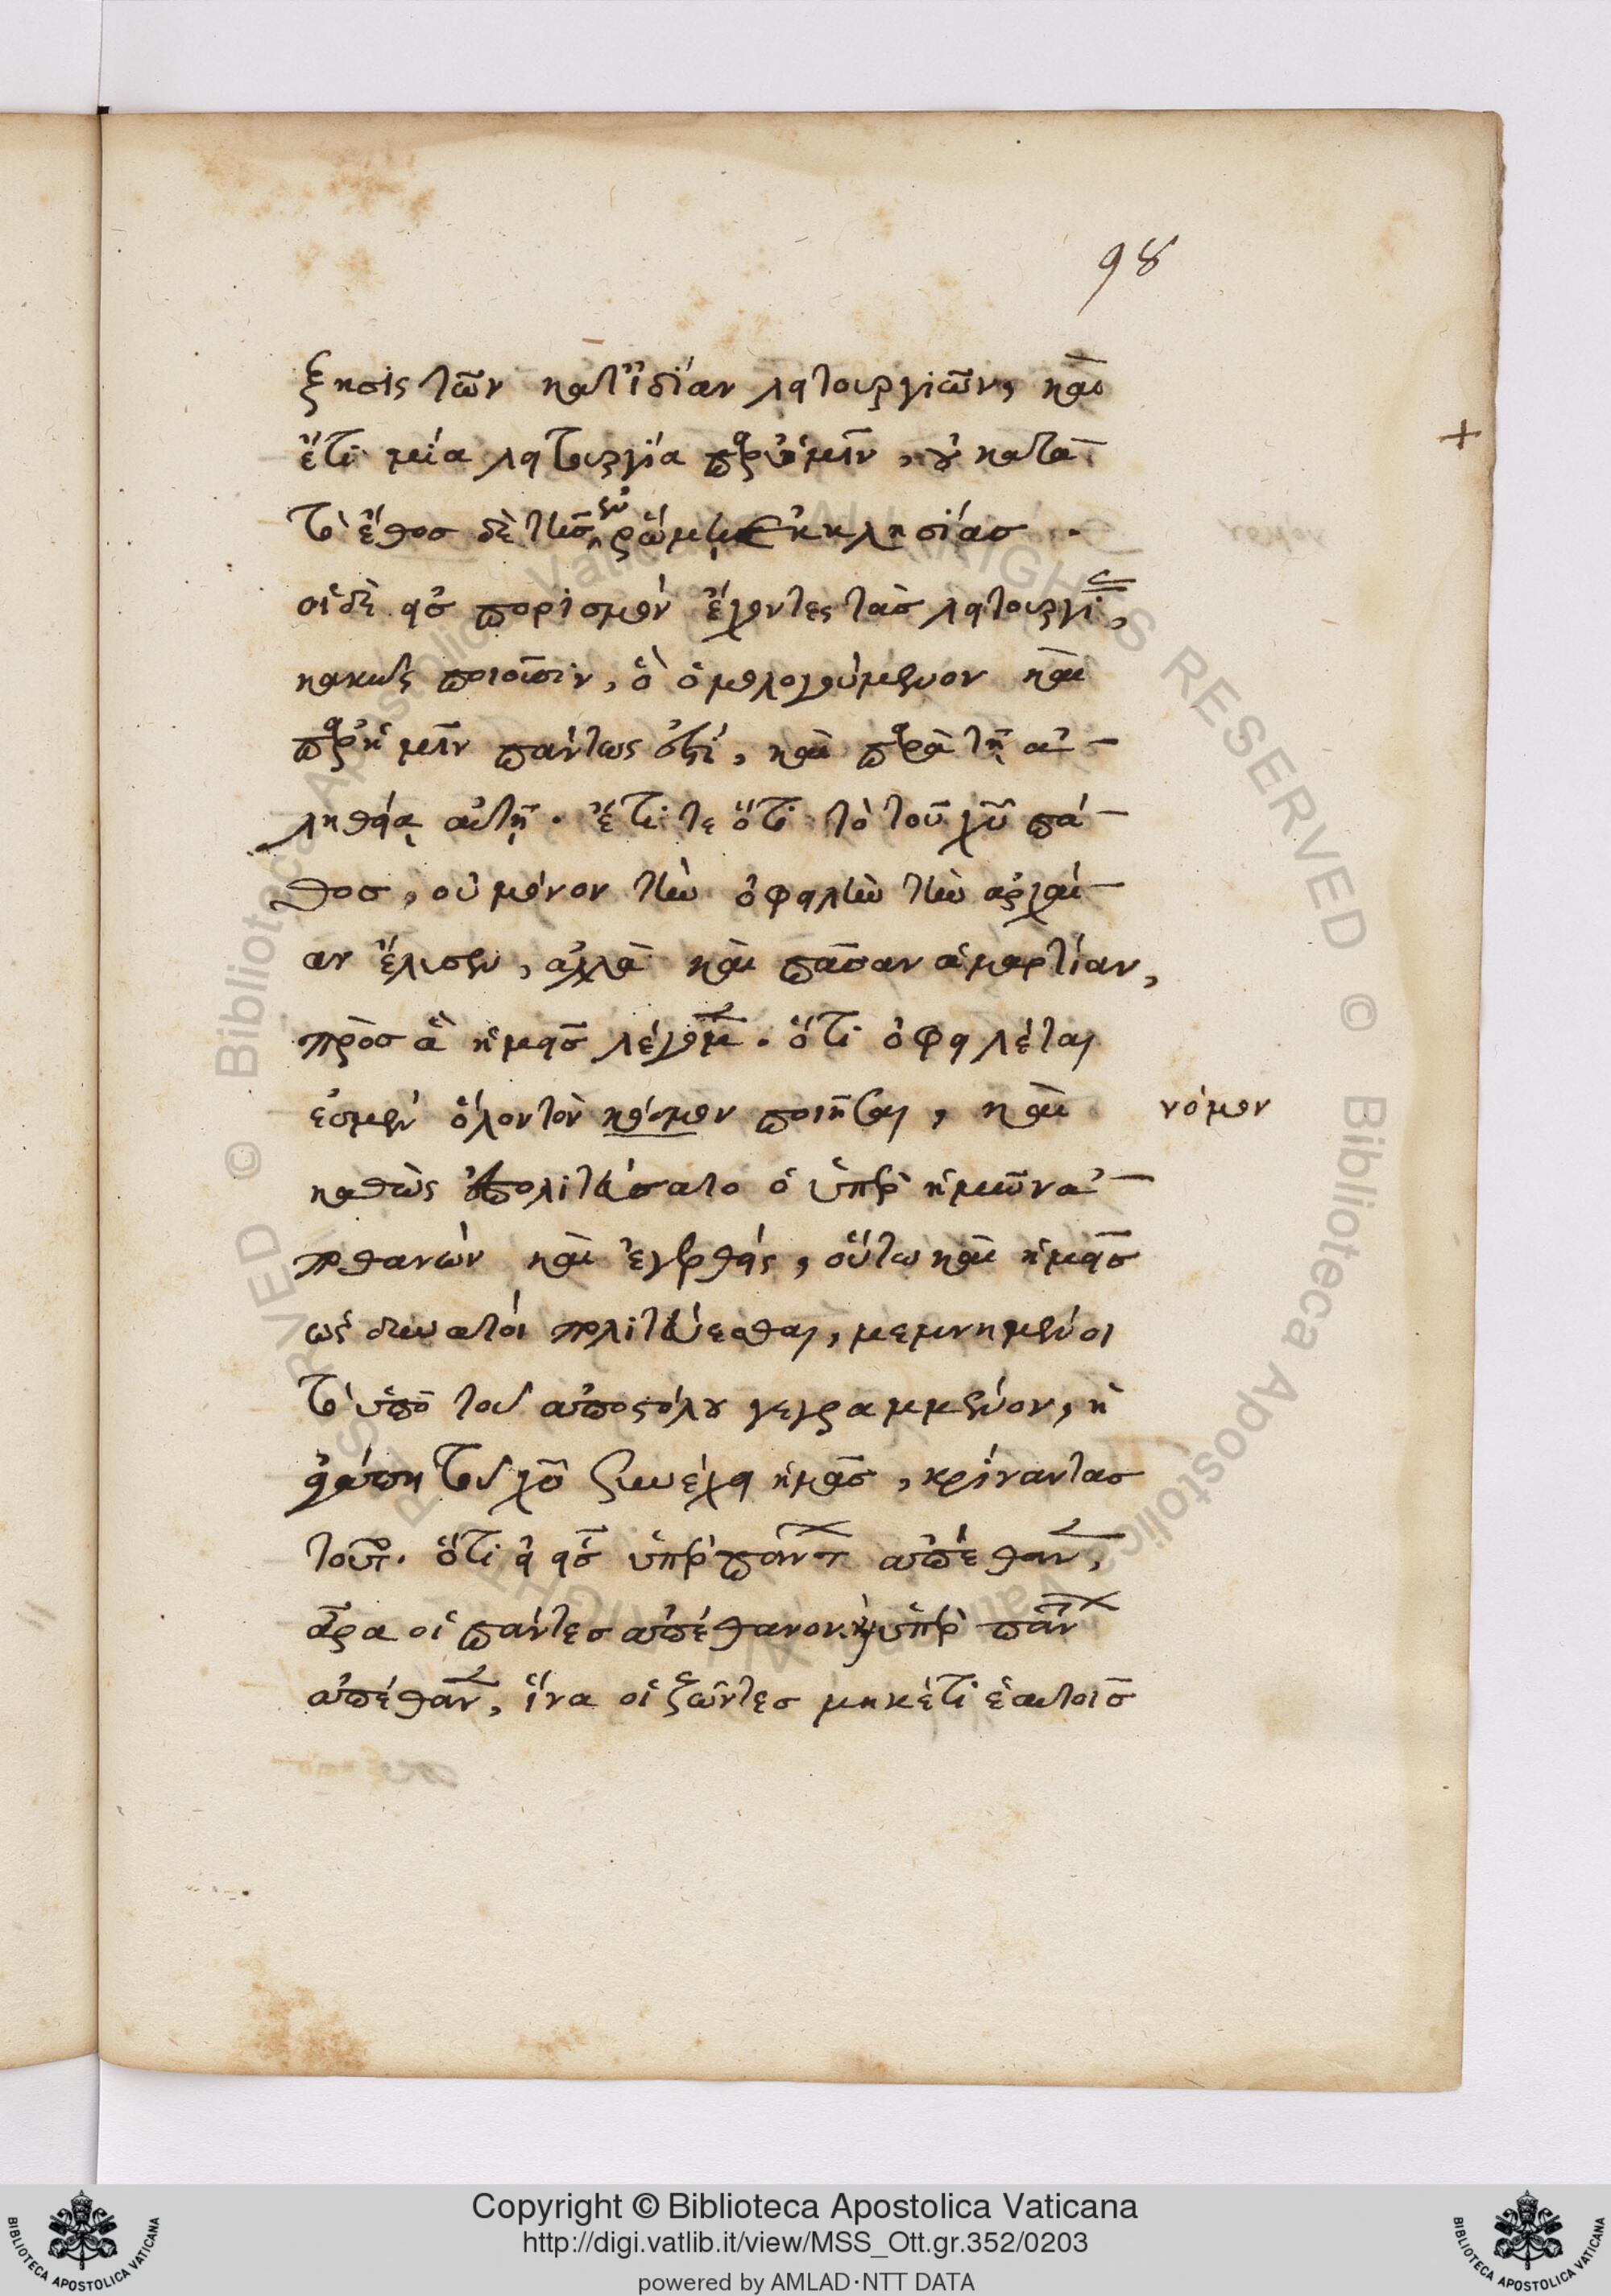 98
ξησις τῶν κατ' ἰδίαν λειτουργιῶν, καὶ
ἔτι μία λειτουργία παρ' ἡμῖν, οὐ κατὰ
τὸ ἔθος δὲ τῆς ἐν ῥώμῃ ἐκκλησίας.
οἱ δὲ εἰς πορισμὸν ἔχοντες τὰς λειτουργί,
κακῶς ποιοῦσιν, ὃ ὁμολογούμενον καὶ
παρ' ἡμῖν πάντως ἐστί, καὶ παρὰ τῇ ἀ-
ληθείᾳ αὐτῇ. ἔτι τε ὅτι τὸ τοῦ χῦ πά-
θος, οὐ μόνον τὴν ὀφειλὴν τὴν ἀρχαί-
αν ἔλυσεν, ἀλλὰ καὶ πᾶσαν ἁμαρτίαν,
πρὸς ἃ ἡμεῖς λέγομεν. ὅτι ὀφειλέται
ἐσμὲν ὅλον τὸν κόσμον ποιῆσαι, καὶ
νόμον
καθὼς ἐπολιτεύσατο ὁ ὑπὲρ ἡμῶν ἀ-
ποθανὼν καὶ ἐγερθείς, οὕτω καὶ ἡμεῖς
ὡς δυνατόν πολιτεύεσθαι, μεμνημένοι
τὸ ὑπὸ τοῦ ἀποστόλου γεγραμμένον, ἡ
ἀγάπη τοῦ χῦ συνέχει ἡμᾶς, κρίναντας
τοῦτο. ὅτι εἰ εἷς ὑπὲρ πάντων ἀπέθανεν,
ἄρα οἱ πάντες ἀπέθανον. καὶ ὑπὲρ πάντων
ἀπέθανεν, ἵνα οἱ ζῶντες μηκέτι ἑαυτοῖς
Copyright © Biblioteca Apostolica Vaticana
http://digi.vatlib.it/view/MSS_Ott.gr.352/0203
powered by AMLAD·NTT DATA